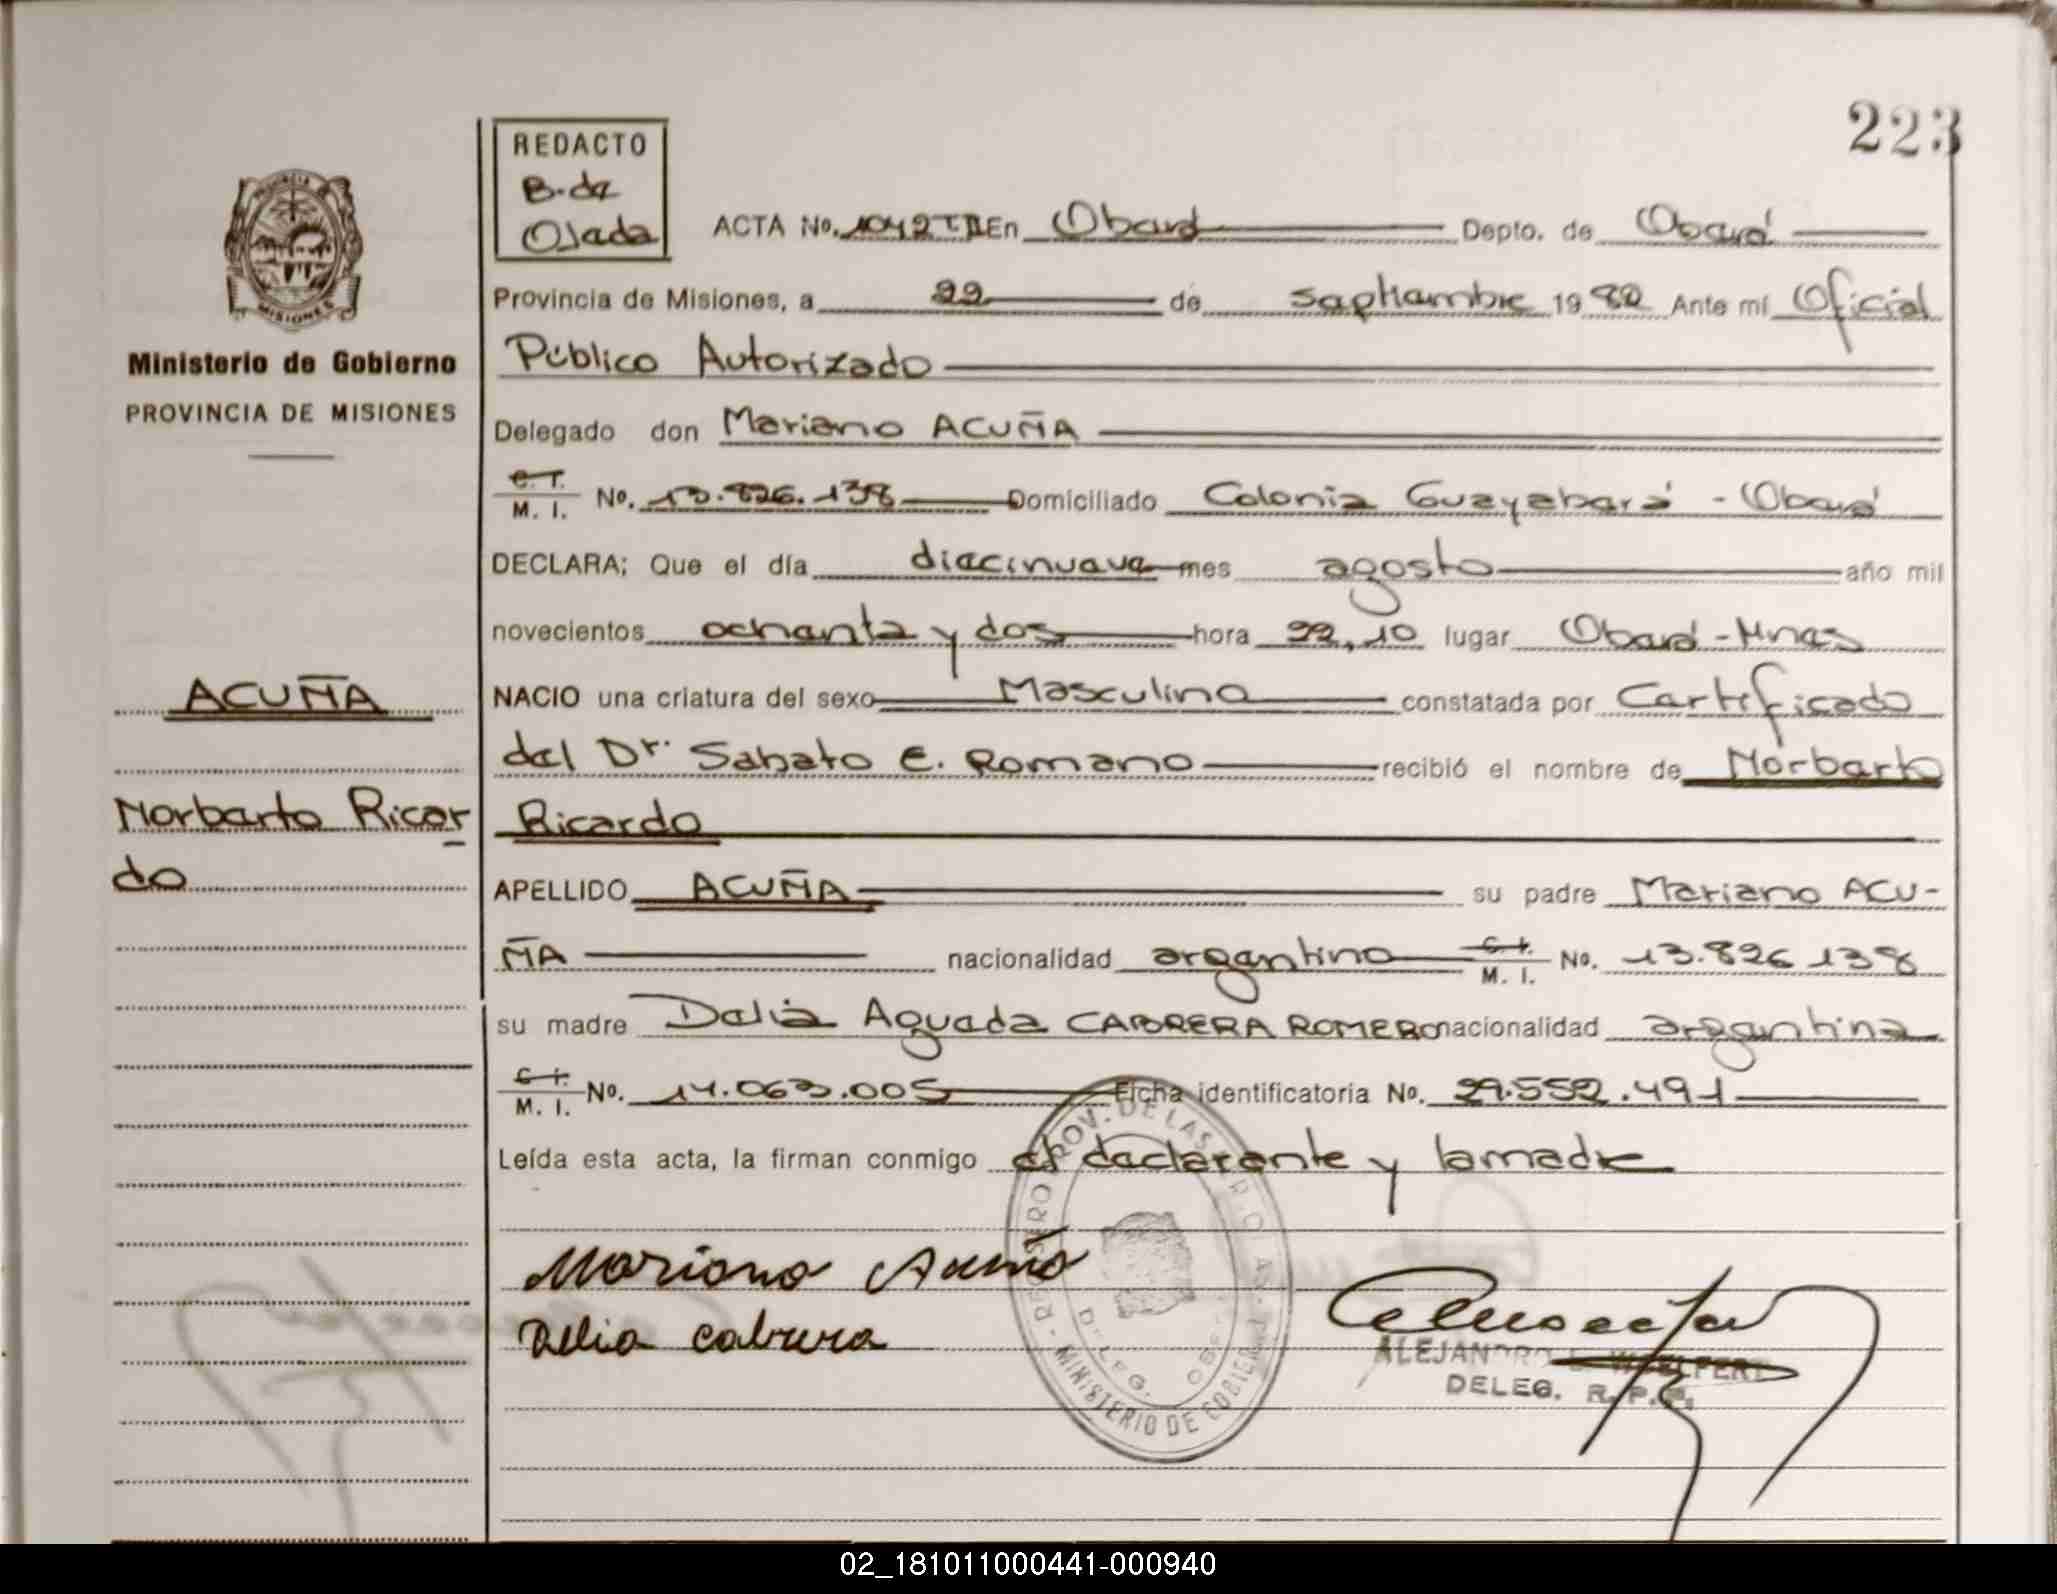 223
REDACTO
B. de
Ojeda
ACTA No. 1042 TII En Oberá Depto. de Oberá
PROVINCIA DE
MISIONES
Provincia de Misiones, a 22 de septiembre 1982 Ante mí Oficial
Ministerio de Gobierno
Público Autorizado
PROVINCIA DE MISIONES
Delegado don Mariano ACUÑA
C. I.
M. I. No. 13.826.138 Domiciliado Colonia Guayaberá - Oberá
DECLARA; Que el día diecinueve mes agosto año mil
novecientos ochenta y dos hora 22,10 lugar Oberá - Mnes
ACUÑA
NACIO una criatura del sexo Masculino constatada por Certificado
del Dr. Sabato E. Romano recibió el nombre de Norberto
Norberto Ricar
Ricardo
do
APELLIDO ACUÑA su padre Mariano ACU-
ÑA nacionalidad argentino C. I. M. I. No. 13.826 138
su madre Delia Agueda CABRERA ROMERO nacionalidad argentina
C. I.
M. I. No. 14.063.005 Ficha identificatoria No. 29.552.491
Leída esta acta, la firman conmigo el declarante y la madre
Mariano Acuña
Delia Cabrera
REGISTRO PROV. DE LAS PERSONAS - MINISTERIO DE GOBIERNO
DELEG. OBERA
ALEJANDRO
DELEG. R.P.P.
02_181011000441-000940